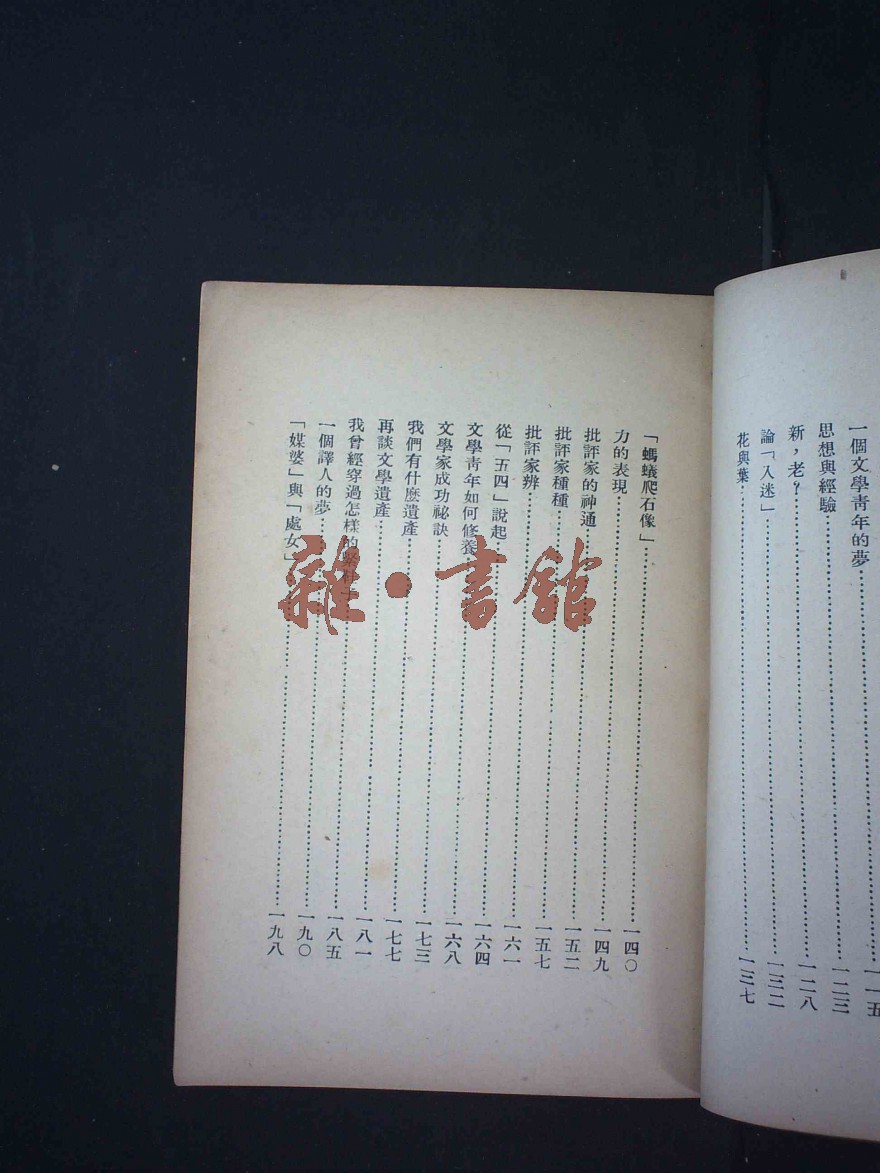 一個文學青年的夢……一一五
思想與經驗……一二三
新，老？……一二八
論「入迷」……一三二
花與葉……一三七
「螞蟻爬石像」……一四〇
力的表現……一四九
批評家的神通……一五二
批評家種種……一五七
批評家辨……一六一
從「五四」說起……一六四
文學青年如何修養……一六八
文學家成功祕訣……一七三
我們有什麼遺產……一七七
再談文學遺產……一八一
我曾經穿過怎樣的……一八五
一個譯人的夢……一九〇
「媒婆」與「處女」……一九八
雜·書館